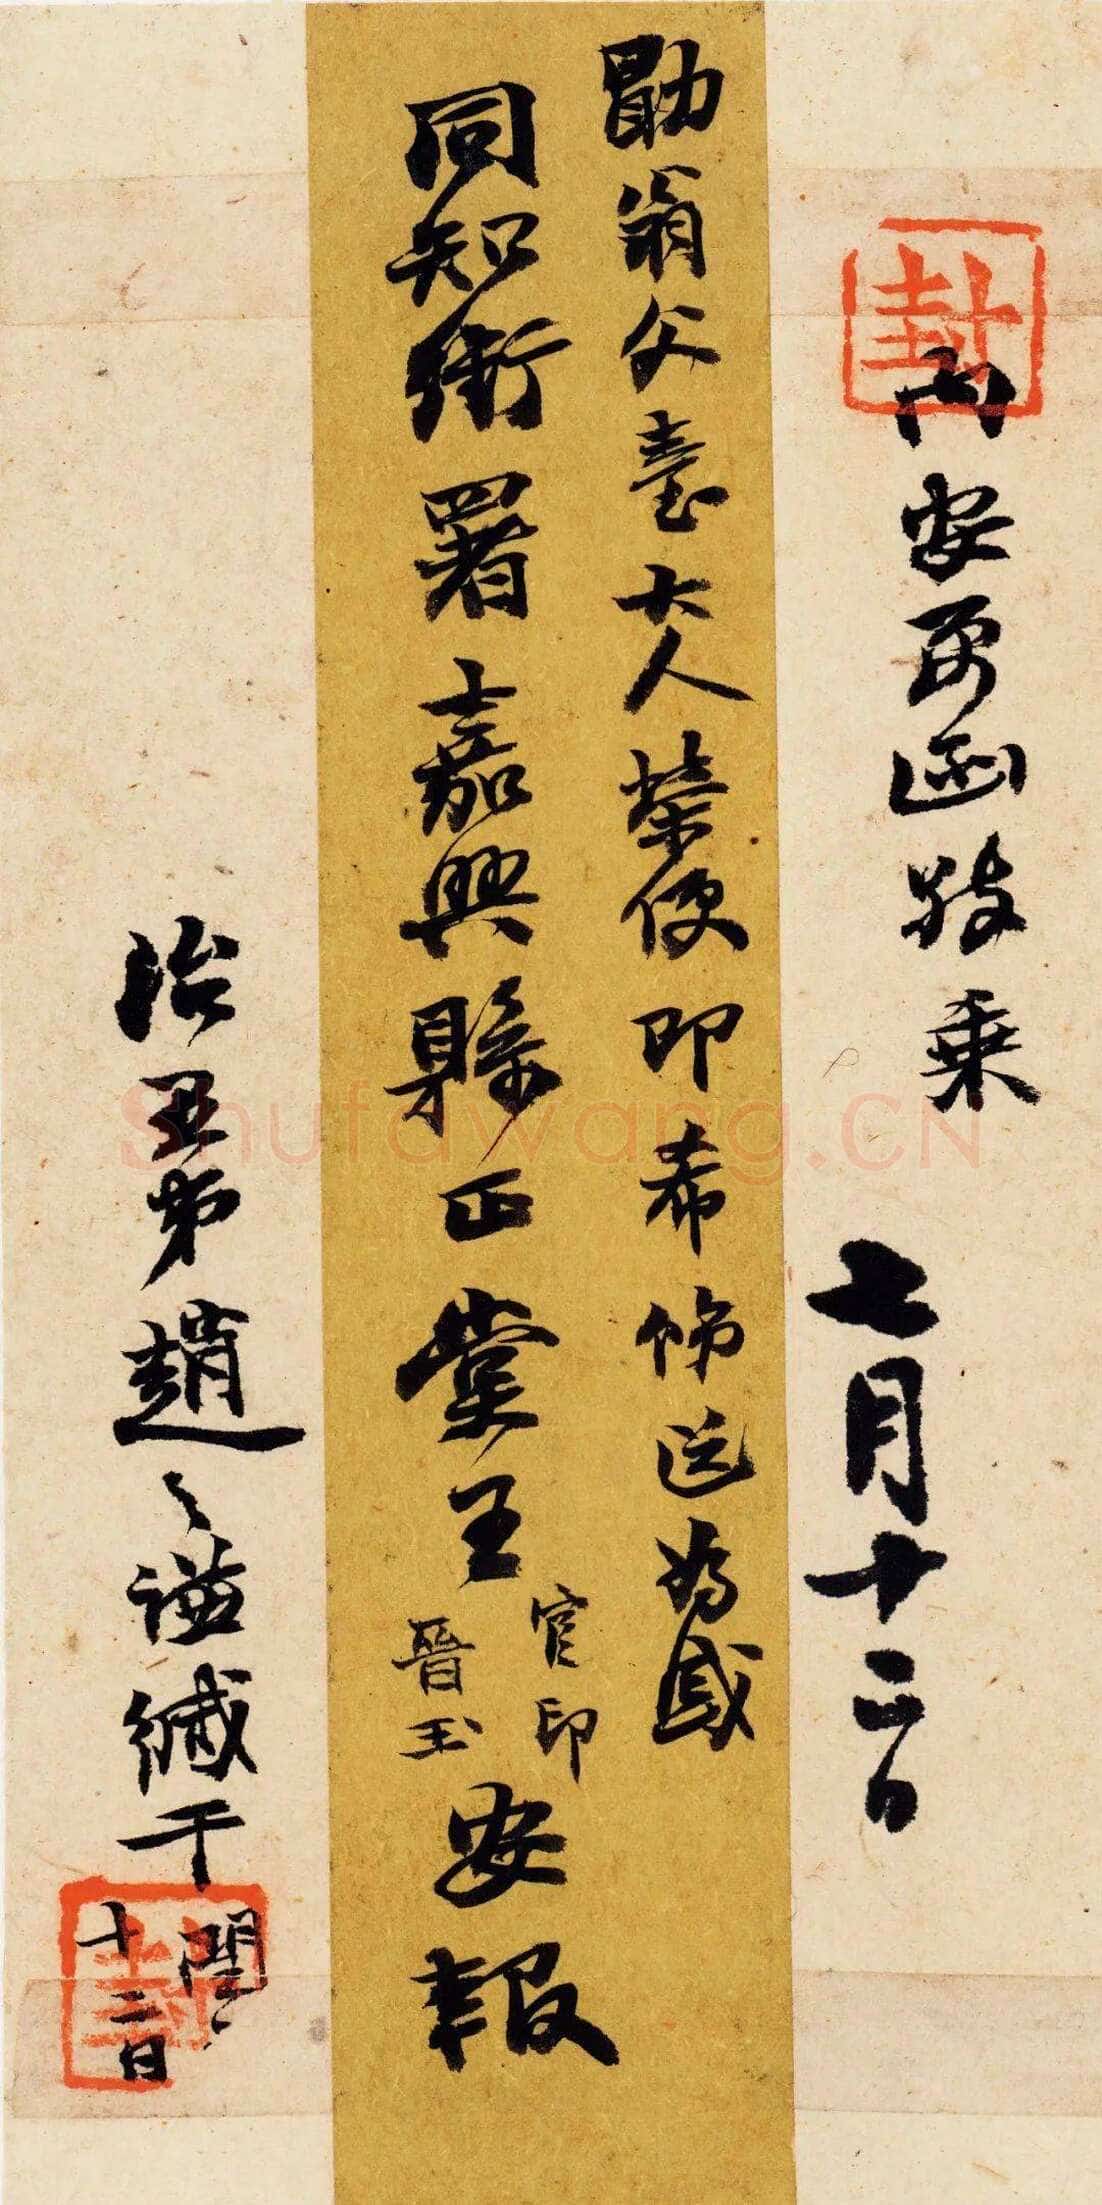 封
內安要函敬乘
七月十二日
勛翁父臺大人榮便即希飭送為感
同知銜署嘉興縣正堂王
官印
晉玉
安報
治愚弟趙之謙緘干
閏
十二日
封
Shufawang.CN